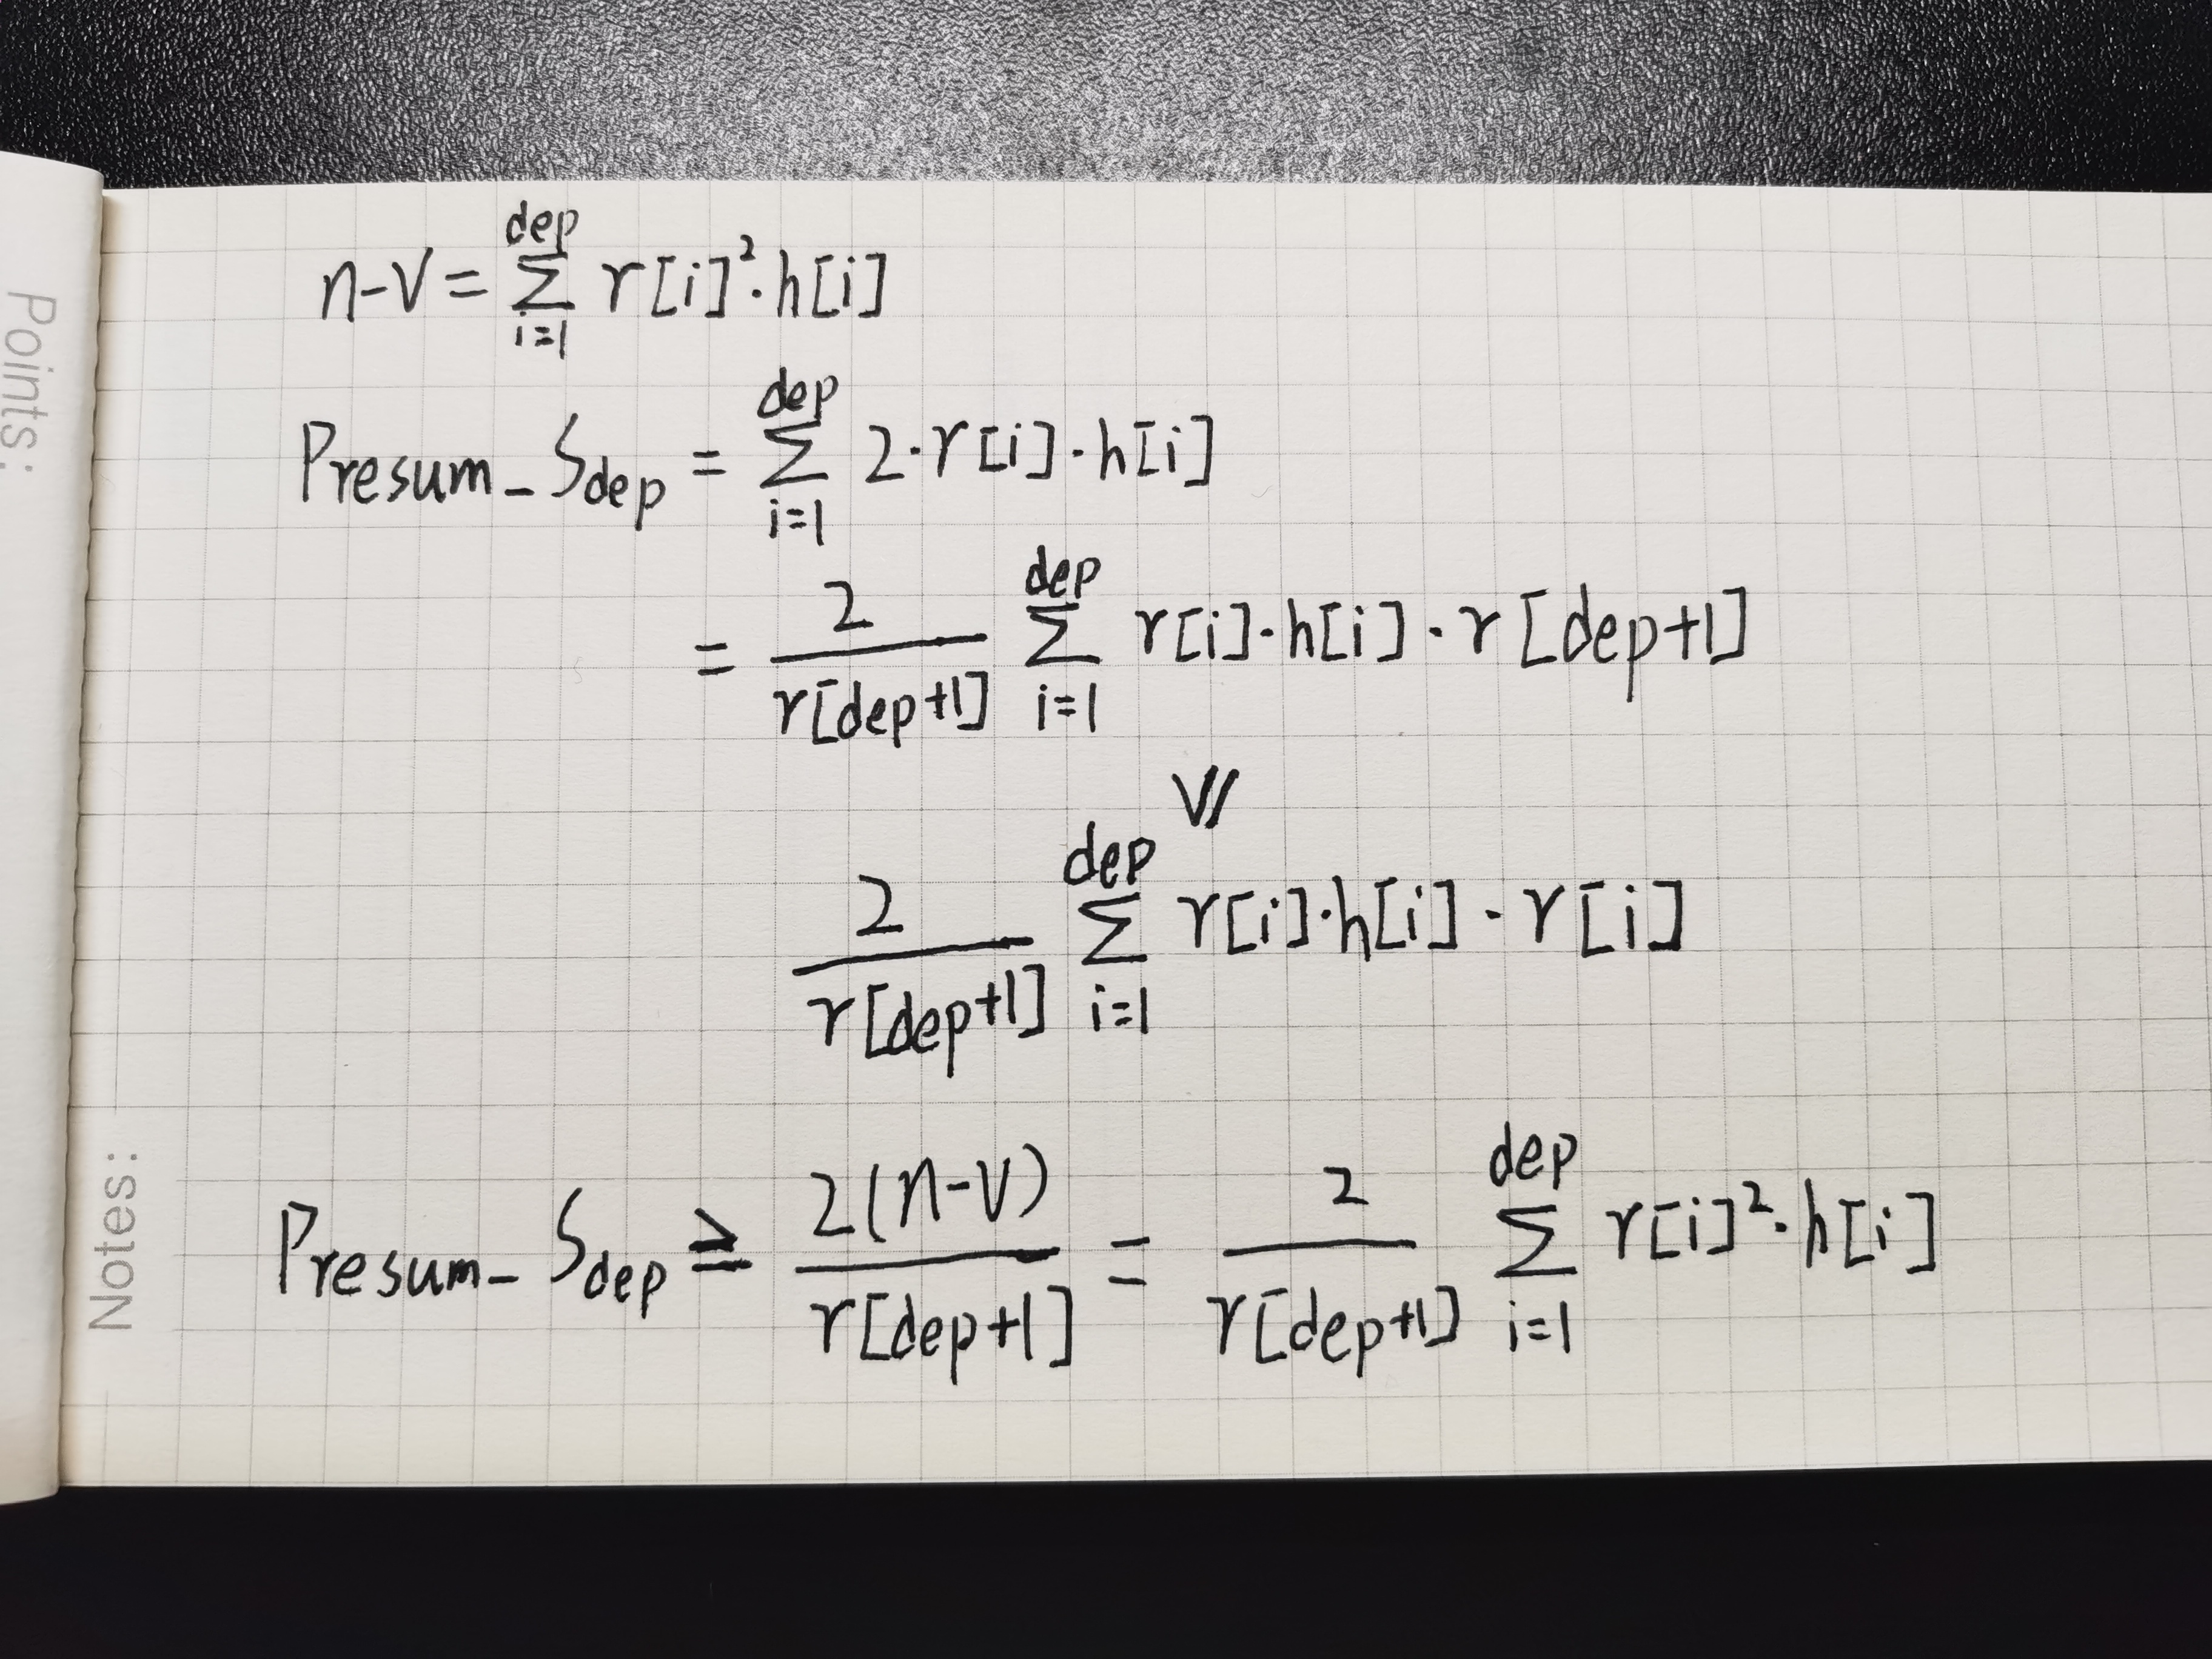 Points:
n-V = \sum_{i=1}^{dep} r[i]^2 \cdot h[i]
Presum_S_{dep} = \sum_{i=1}^{dep} 2 \cdot r[i] \cdot h[i]
= \frac{2}{r[dep+1]} \sum_{i=1}^{dep} r[i] \cdot h[i] \cdot r[dep+1]
V//
\frac{2}{r[dep+1]} \sum_{i=1}^{dep} r[i] \cdot h[i] \cdot r[i]
Notes:
Presum_S_{dep} ≥ \frac{2(n-V)}{r[dep+1]} = \frac{2}{r[dep+1]} \sum_{i=1}^{dep} r[i]^2 \cdot h[i]